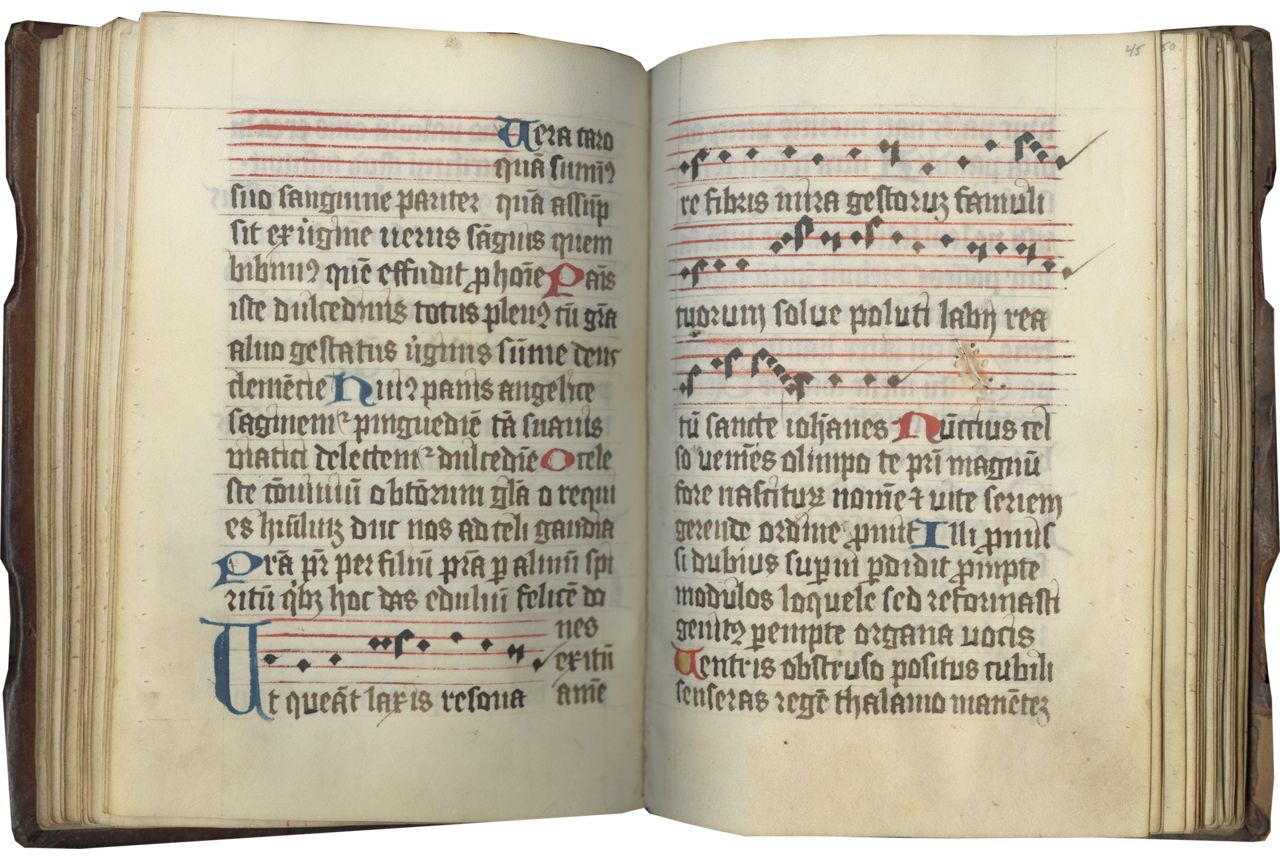 Uera caro
quā sumimꝰ
suo sanguine pariter quā assūp
sit ex ůgine uerus sāguis quem
bibimꝰ quē effudit ꝓ hoīe Panis
iste dulcedinis totus plenꝰ tū gra
aluo gestatus ůginis sūme deus
clemētie Huiꝰ panis angelice
saginemꝛ pinguedīe tā suauis
uiatici delectemꝛ dulcedīe O cele
ste cōuiuiū o btōrum glā o requi
es duc nos ad celi gaudia
Prā pr̄ per filiū prā p almū spi
ritū qͥbꝫ hoc das eduliū felicē do
nes
exitū
amē
Ut queāt laxis resona
45 50
re fibris mira gestoruꝫ famuli
tuorum solue poluti labij rea
tū sancte iohanes Nūccius cel
so ueniēs olimpo te pr̄i magnū
fore nasciturꝫ nomē ⁊ uite seriem
gerende ordine ꝓmit Illi ꝓmis
si dubius supni pdidit ꝓmpte
modulos loquele sed reformasti
genitꝰ pempte organa uocis
Uentris obstruso positus cubili
senseras regē thalamo manēteꝫ